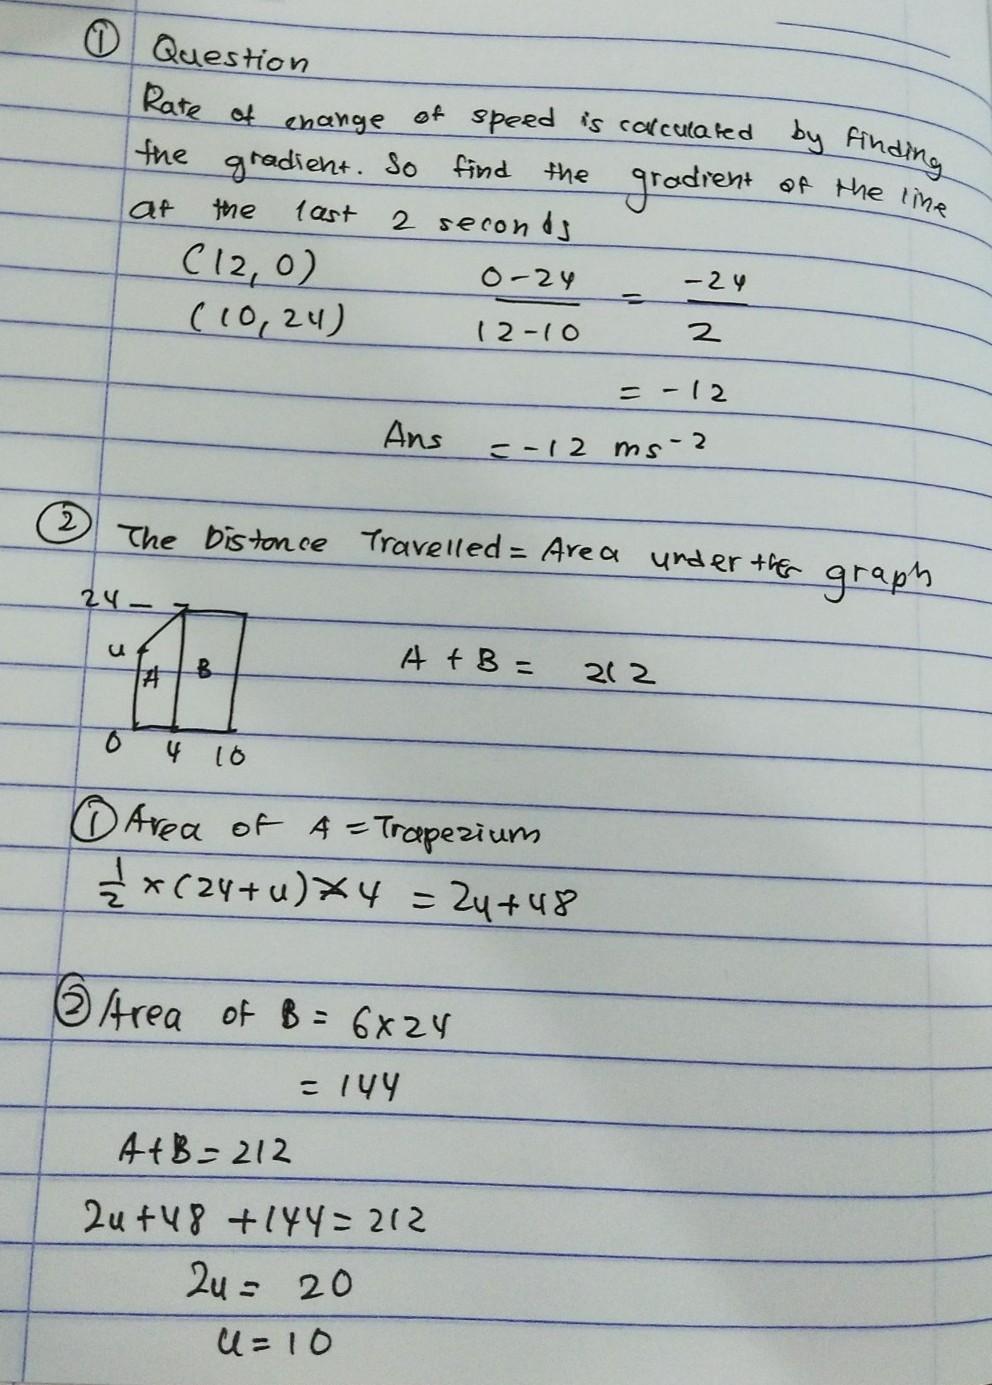 ① Question
Rate of change of speed is calculated by finding
the gradient. So find the gradient of the line
at the last 2 seconds
(12, 0)
(10, 24)
0-24 / 12-10 = -24 / 2
= -12
Ans = -12 ms⁻²
② The Distance Travelled = Area under the graph
24
u
A B
0 4 10
A + B = 212
① Area of A = Trapezium
1/2 × (24+u) × 4 = 2u+48
② Area of B = 6×24
= 144
A+B = 212
2u+48 +144 = 212
2u = 20
u = 10